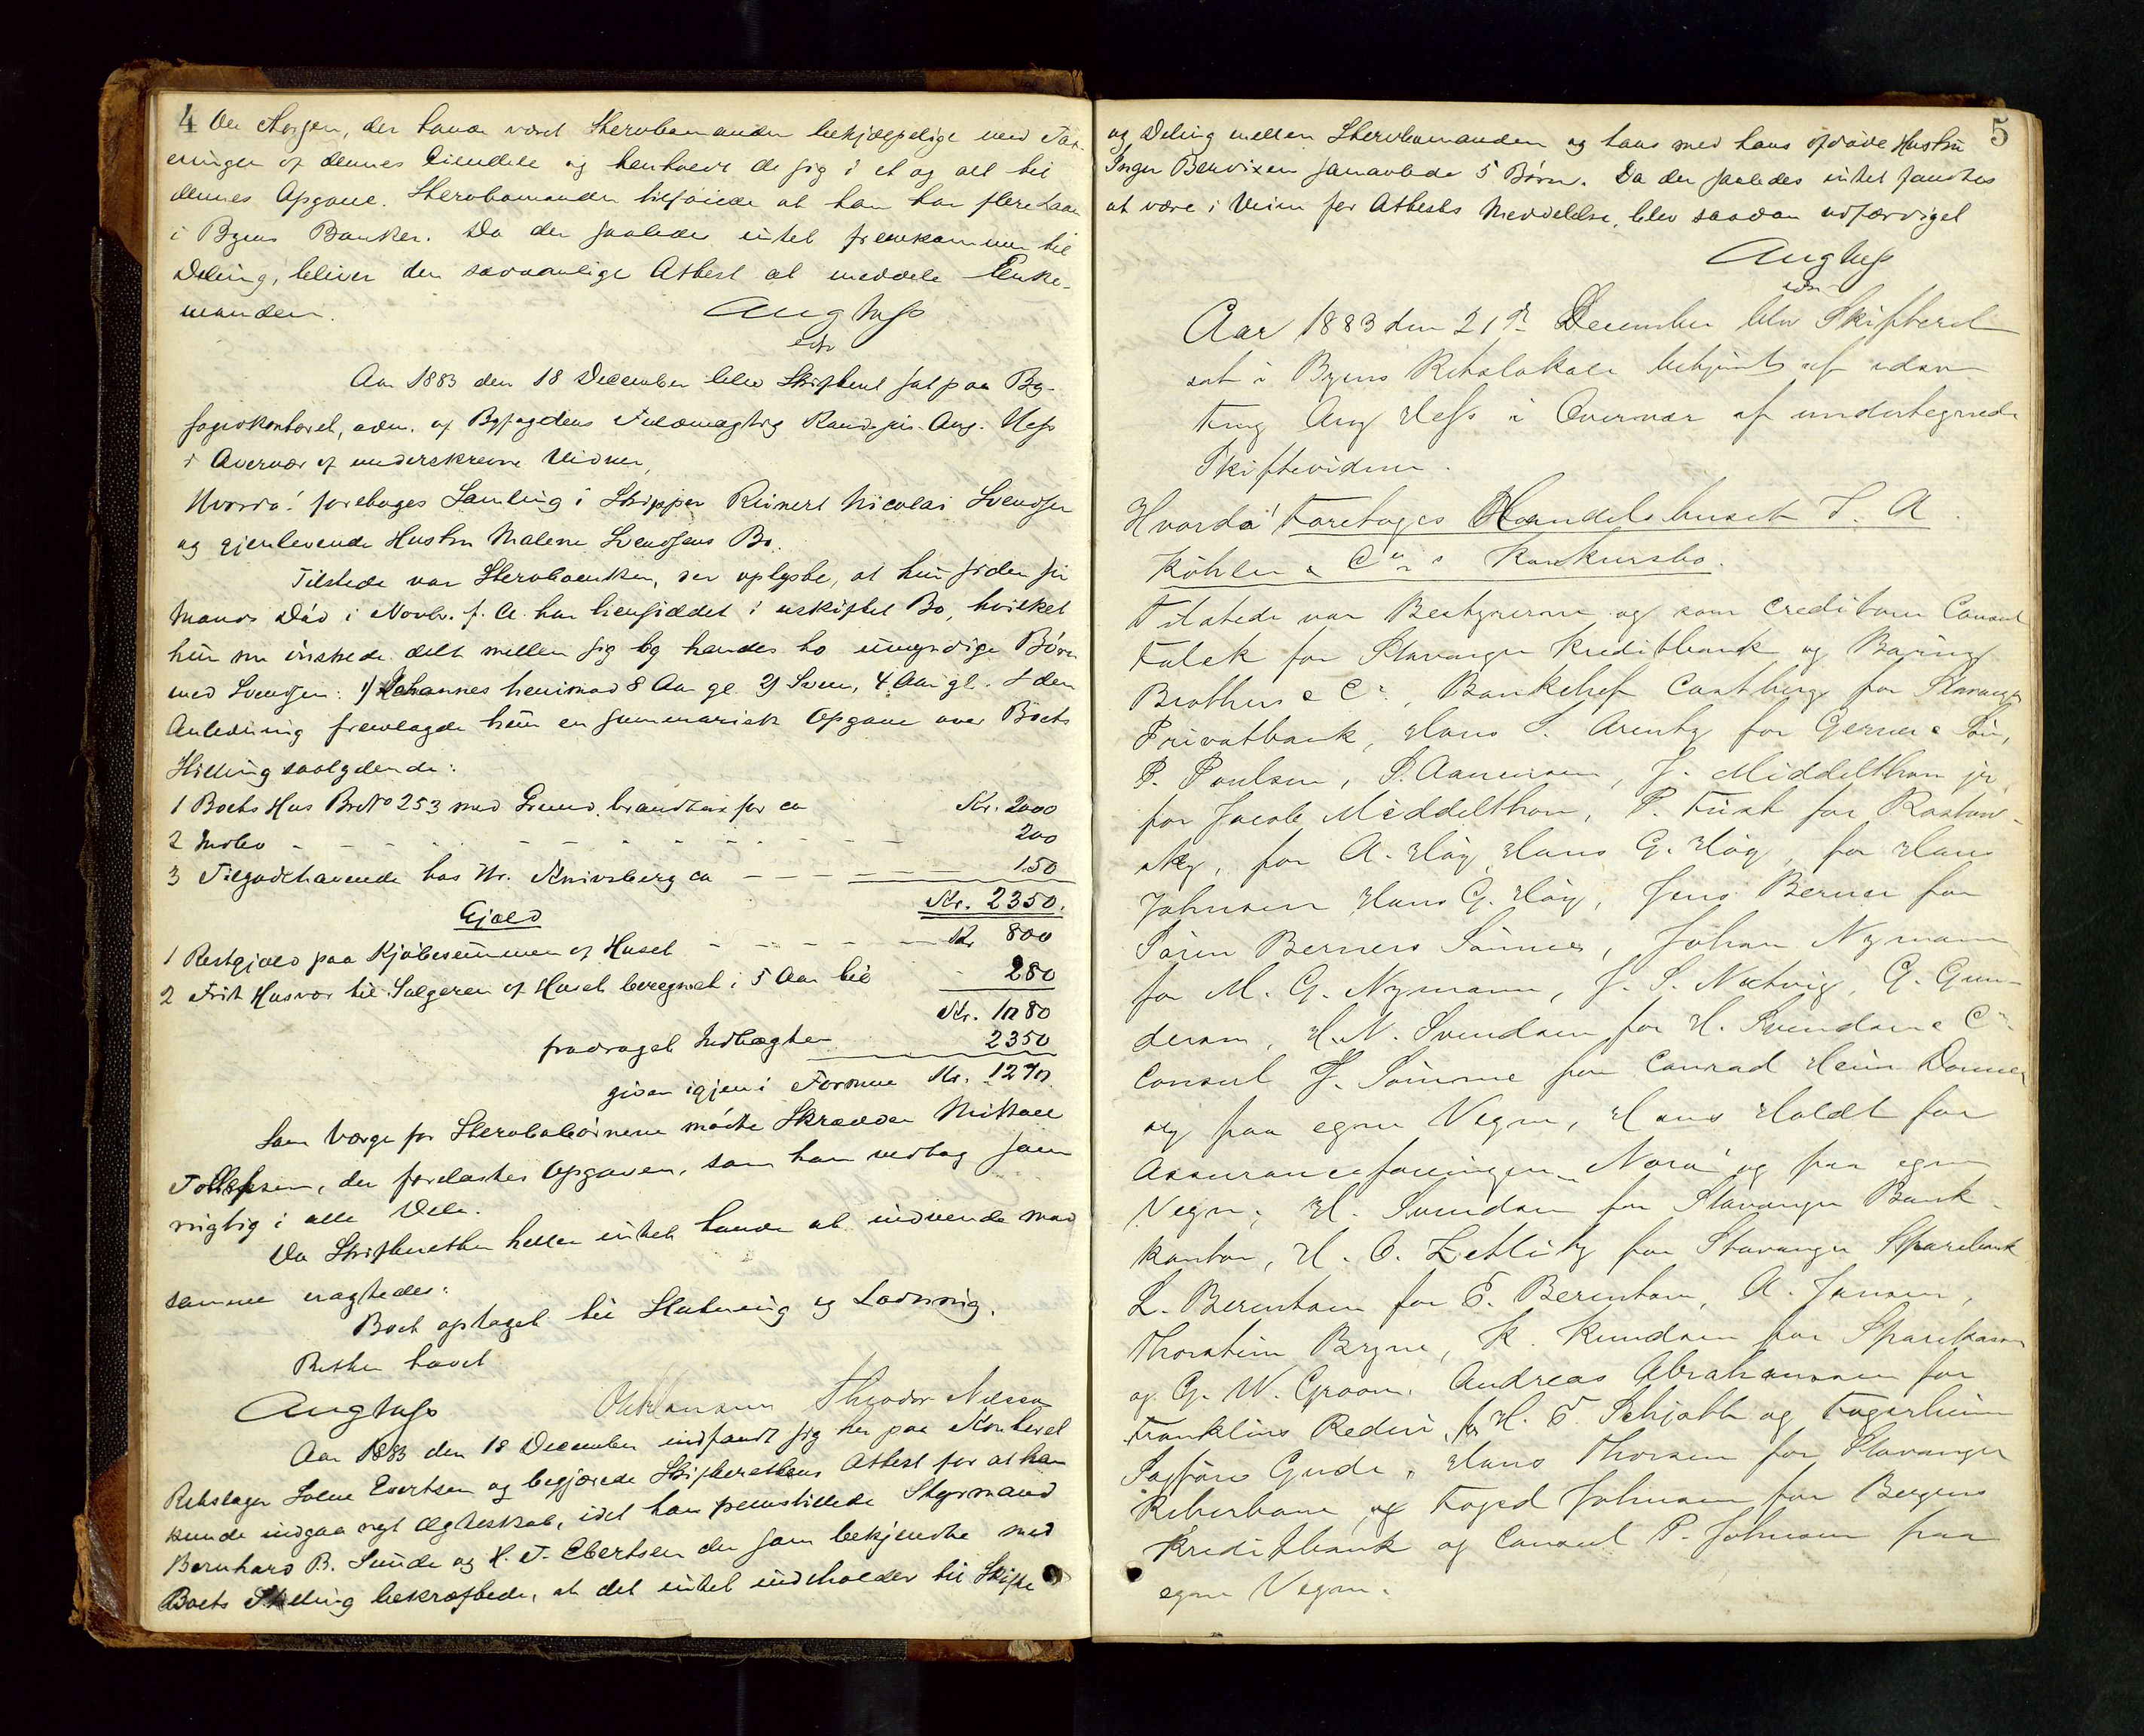 4
der havde været Sterbomanden behjælpelige med Tax-
eringen af dennes Eiendele og henholdt de sig i et og alt til
dennes Opgave. Sterbomanden tilføiede at han har flere Laan
i Byens Banker. Da der saaledes intet fremkommer til
Deling, bliver den sædvanlige Attest at meddele Enke-
manden.
Aug Hess
cst
Aar 1883 den 18 December blev Skifteret sat paa By-
fogdkontoret, adm. af Byfogdens Fuldmægtig Kand. jur. Aug. Hess
i Overvær af underskrevne Vidner,
Hvorda! foretoges Samling i Skipper Reinert Nicolai Svendsen
og gjenlevende Hustru Malene Svendsens Bo.
Tilstede var Sterboenken, der oplyste, at hun siden sin
Mands Død i Novbr. f. A. har hensiddet i uskiftet Bo, hvilket
hun nu ønskede delt mellem sig og hendes to umyndige Børn
med Svendsen: 1) Johannes henimod 8 Aar gl. 2) Sven, 4 Aar gl. I den
Anledning fremlagde hun en summarisk Opgave over Boets
Stilling saalydende:
1 Boets Hus Br No 253 med Grund, brandtax for ca Kr. 2000
2 Indbo - - - - - - - - 200
3 Tilgodehavende hos Hr. Knivsberg ca - - - - 150
Kr. 2350.
Gjæld
1 Restgjæld paa Kjøbesummen af Huset - - - - - Kr 800
2 Frit Husvær til Sælgeren af Huset beregnet i 5 Aar til - 280
Kr. 1080
fradraget Indtægten 2350
giver igjen i Formue Kr. 1270
Som Værge for Sterbobørnene mødte Skrædder Mikael
Tollefsen, der forelæstes Opgaven, som han vedtog som
rigtig i alle Dele.
Da Skifteretten heller intet havde at indvende mod
samme eragtedes:
Boet optaget til Slutning og Lodning.
Retten hævet
Aug Hess Theodor Nielsen
Aar 1883 den 18 December indfandt sig her paa Kontoret
Rebslager Evertsen og begjærede Skifterettens Attest for at han
kunde indgaa nyt Ægteskab, idet han fremstillede Styrmand
Bernhard B. Sunde og H. T. Ebertsen der som bekjendte med
Boets Stilling bekræftede, at det intet indeholder til Skifte
5
og Deling mellem Sterbomanden og hans med hans afdøde Hustru
Inger Bendixen sanavlede 5 Børn. Da der saaledes intet fandtes
at være i Veien for Attests Meddelelse, blev saadan udfærdiget
Aug Hess
cst
Aar 1883 den 21de December blev Skifteret
sat i Byens Retslokale betjent af edsv
Fmg Aug Hess i Overvær af undertegnede
Skiftevidner.
Hvorda! Foretoges Handelshuset S. A.
Köhler & Co's Konkursbo.
Tilstede var Bestyrerne og som Creditorer Consul
Falck for Stavanger Kreditbank og Baring
Brothers & Co, Bankchef Castberg for Stavanger
Privatbank, Hans S. Arentz for Gerner & Søn,
P. Poulsen, S. Aanensen, J. Middelthon jr
for Jacob Middelthon, P. Tusk for Rostow-
sky, for A. Høy Hans G. Høy, for Hans
Johnsen Hans G. Høy, Jens Berner for
Søren Berners Sønner, Johan Nymann
for M. G. Nymann, J. S. Natvig, G. Gun-
dersen, H. N. Svendsen for H. Svendsen & Co
Consul J. Sømme for Conrad Hein Donner
og paa egne Vegne, Hans Holdt for
Assuranceforeningen "Nora" og paa egne
Vegne, H. Svendsen for Stavanger Bank-
kontor, H. C. Zetlitz for Stavanger Sparebank
L. Berentsen for E. Berentsen, A. Jansen,
Thorstein Bryne, K. Knudsen for Sparekassen
og G. W. Groom, Andreas Abrahamsen for
Franklins Rederi, for H. E. Schjøtt og Fagerheim
Sagfører Gude, Hans Thorsen for Stavanger
Reberbane, og Foged Johnsen for Bergens
Kreditbank og Consul P. Johnsen paa
egne Vegne.